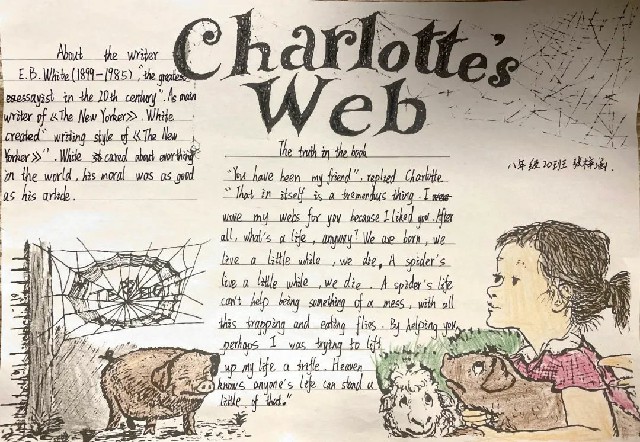 Charlotte's
Web
About the writer
E.B. White (1899-1985), "the greatest
essayist in the 20th century". As main
writer of <<The New Yorker>>. White
created" writing style of <<The New
Yorker>>". White cared about everything
in the world, his moral was as good
as his article.
The truth in the book
"You have been my friend", replied Charlotte.
"That in itself is a tremendous thing. I
wove my webs for you because I liked you. After
all, what's a life, anyway? We are born, we
live a little while, we die. A spider's
live a little while, we die. A spider's life
can't help being something of a mess, with all
this trapping and eating flies. By helping you,
perhaps I was trying to lift
up my life a trifle. Heaven
knows anyone's life can stand a
little of that."
八年级20班